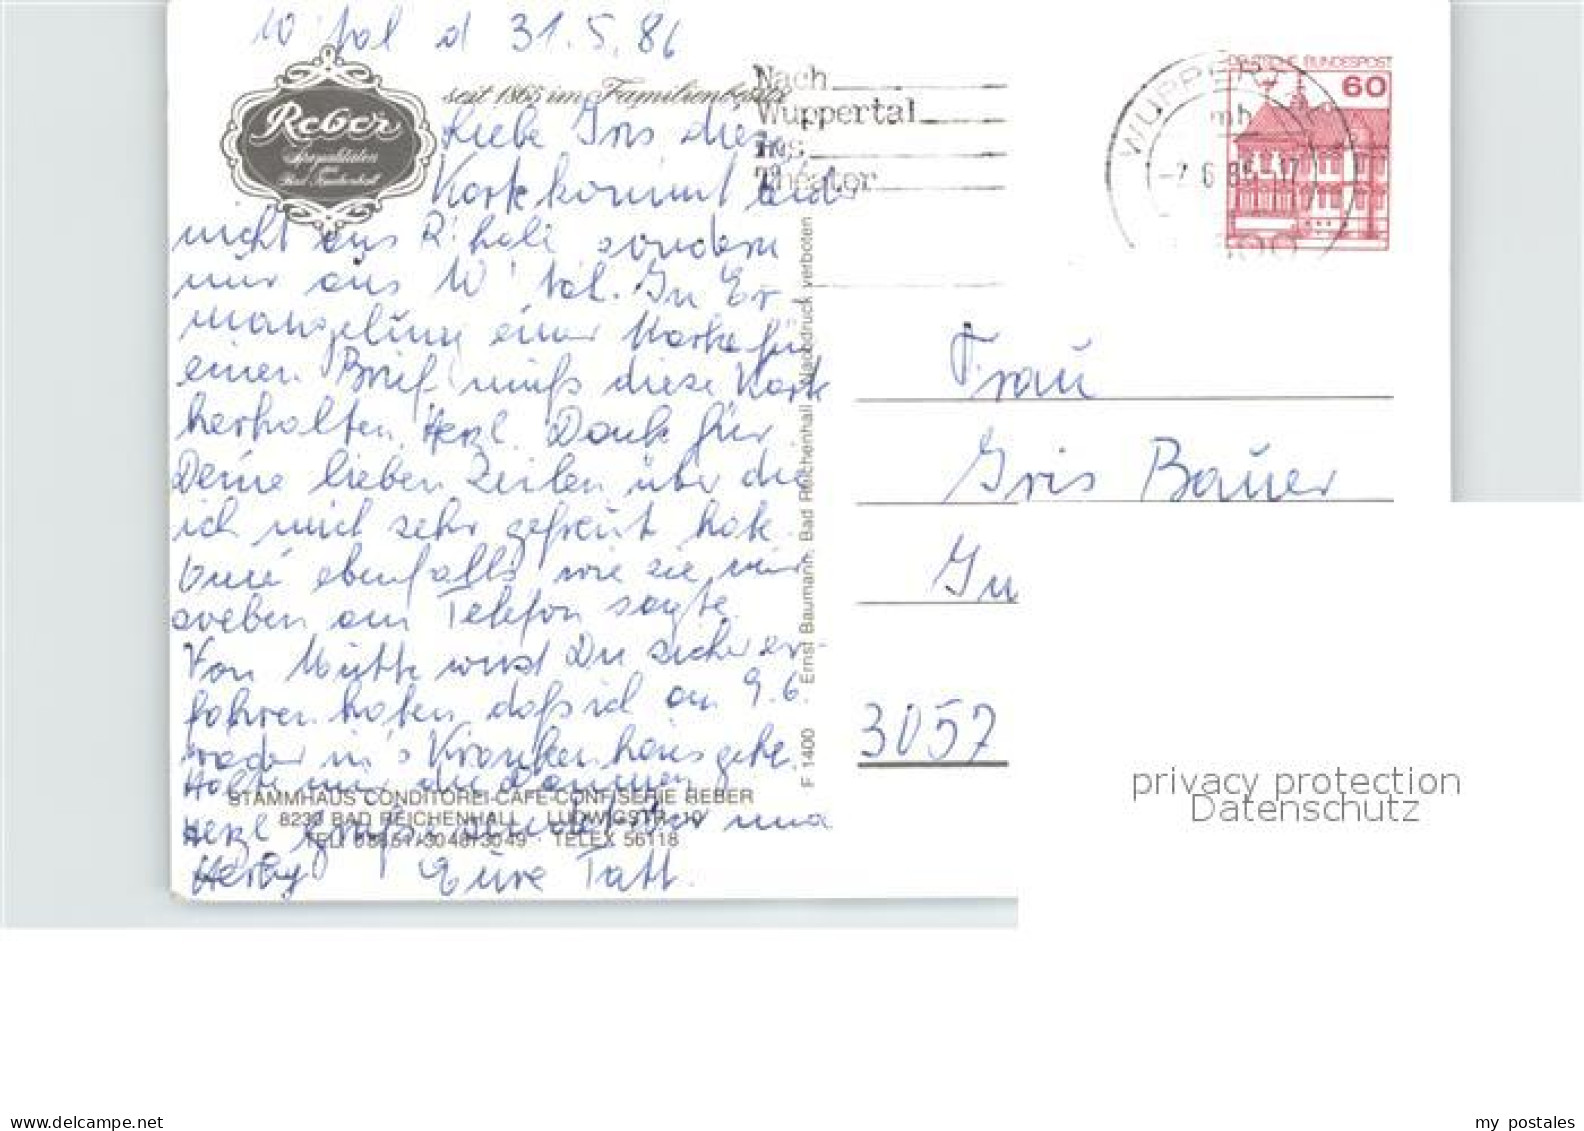 W'tal d 31.5.86
Reber
Spezialitäten
aus
Bad Reichenhall
seit 1865 im Familienbesitz
Nach
Wuppertal
ins
Theater
WUPPERTAL
mh
-2.6.86.-17
DEUTSCHE BUNDESPOST
60
Liebe Iris diese
Karte kommt leider
nicht aus R'hall sondern
nur aus W'tal. In Er
mangelung einer Karte für
einen Brief muß diese Karte
herhalten. Herzl. Dank für
Deine lieben Zeilen über die
ich mich sehr gefreut habe.
ebenfalls wie sie mir
soeben am Telefon sagte.
Von Mutti wirst Du sicher er
fahren haben, daß ich am 9.6.
wieder in's Krankenhaus gehe.
Halte mir die Daumen
Herzl Grüße auch
Herby Eure
STAMMHAUS CONDITOREI-CAFE-CONFISERIE REBER
8230 BAD REICHENHALL LUDWIGSTR. 10
TEL. 08651/3048+3049 TELEX 56118
F 1400 Ernst Baumann, Bad Reichenhall Nachdruck verboten
Frau
Iris Bauer
3057
privacy protection
Datenschutz
my postales